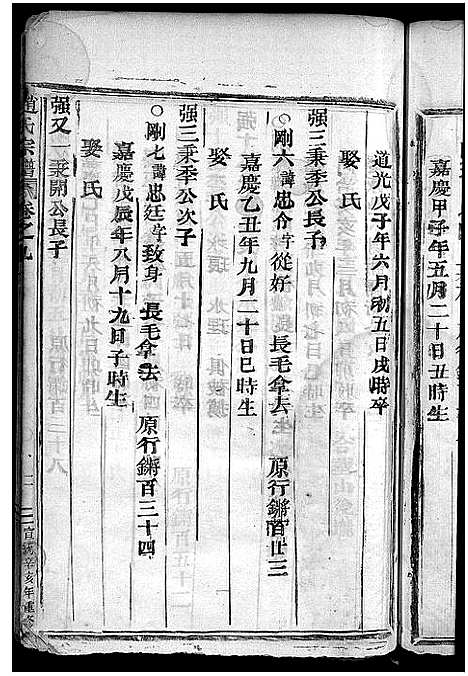 嘉慶甲子年五月二十日丑時生
道光戊子年六月初五日戌時卒
娶氏
强三秉季公長子
○剛六諱忠介字從好 長毛拿去 原行鏘百廿三
嘉慶乙丑年九月二十日巳時生
娶氏
强三秉季公次子
○剛七諱忠廷字致身 長毛拿去 原行鏘百三十四
嘉慶戊辰年八月十九日子時生
娶氏
强又一秉開公長子
趙氏宗譜 卷之九
宣統辛亥年重修